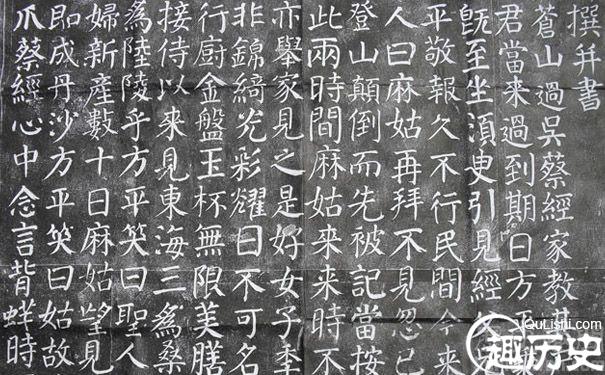 撰并書
蒼山過吳蔡經家教其
君當來過到期日方平
既至坐須臾引見經父
平敬報久不行民間今來
人曰麻姑再拜不見忽已
登山顛倒而先被記當按
此兩時間麻姑來來時不
亦舉家見之是好女子秊
非錦綺光彩耀日不可名
行廚金盤玉杯無限美膳
接侍以來見東海三為桑
為陸陵乎方平笑曰聖人
婦新產數十日麻姑望見
即成丹沙方平笑曰姑故
爪蔡經心中念言背蛘時
QuLishi.com
趣历史